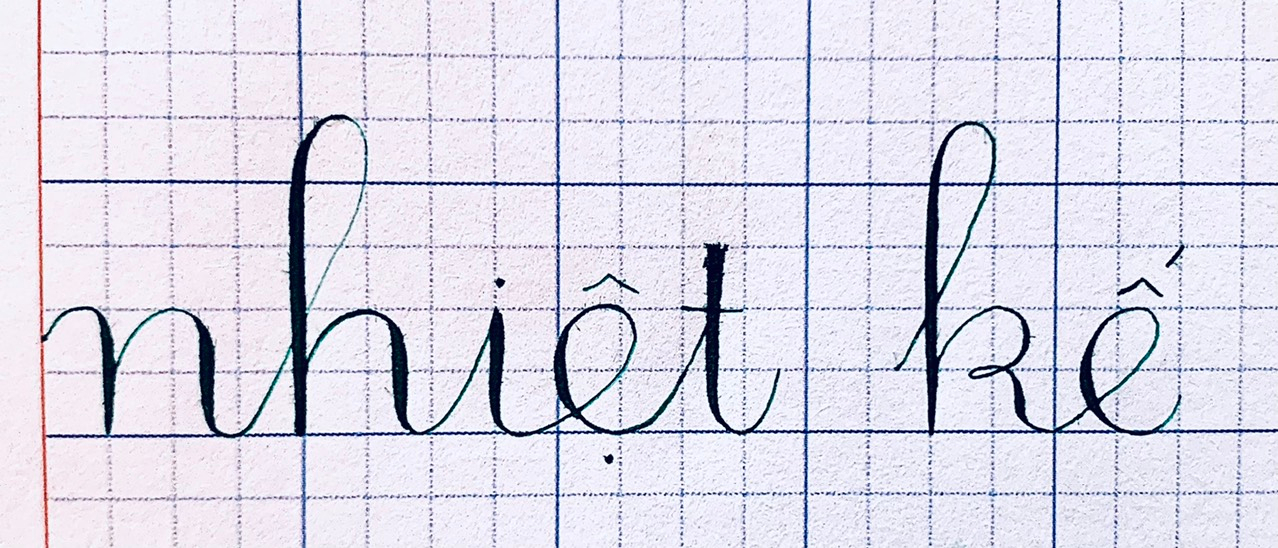 nhiệt kế